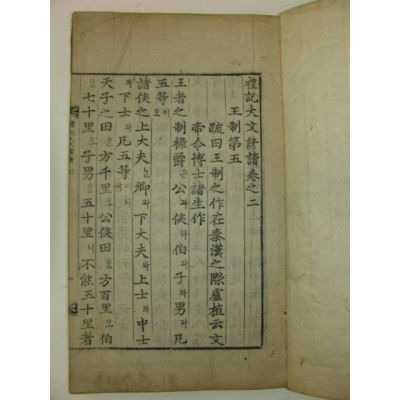 禮記大文諺讀卷之二
王制第五
疏曰王制之作在秦漢之際盧植云文
帝令博士諸生作
王者之制祿爵은公侯와伯子와男과凡
五等
諸侯之上大夫卿下大夫와上士와中士
와下士와凡五等이
天子之田方千里오公侯田方百里오伯
七十里오子男五十里不能五十里者